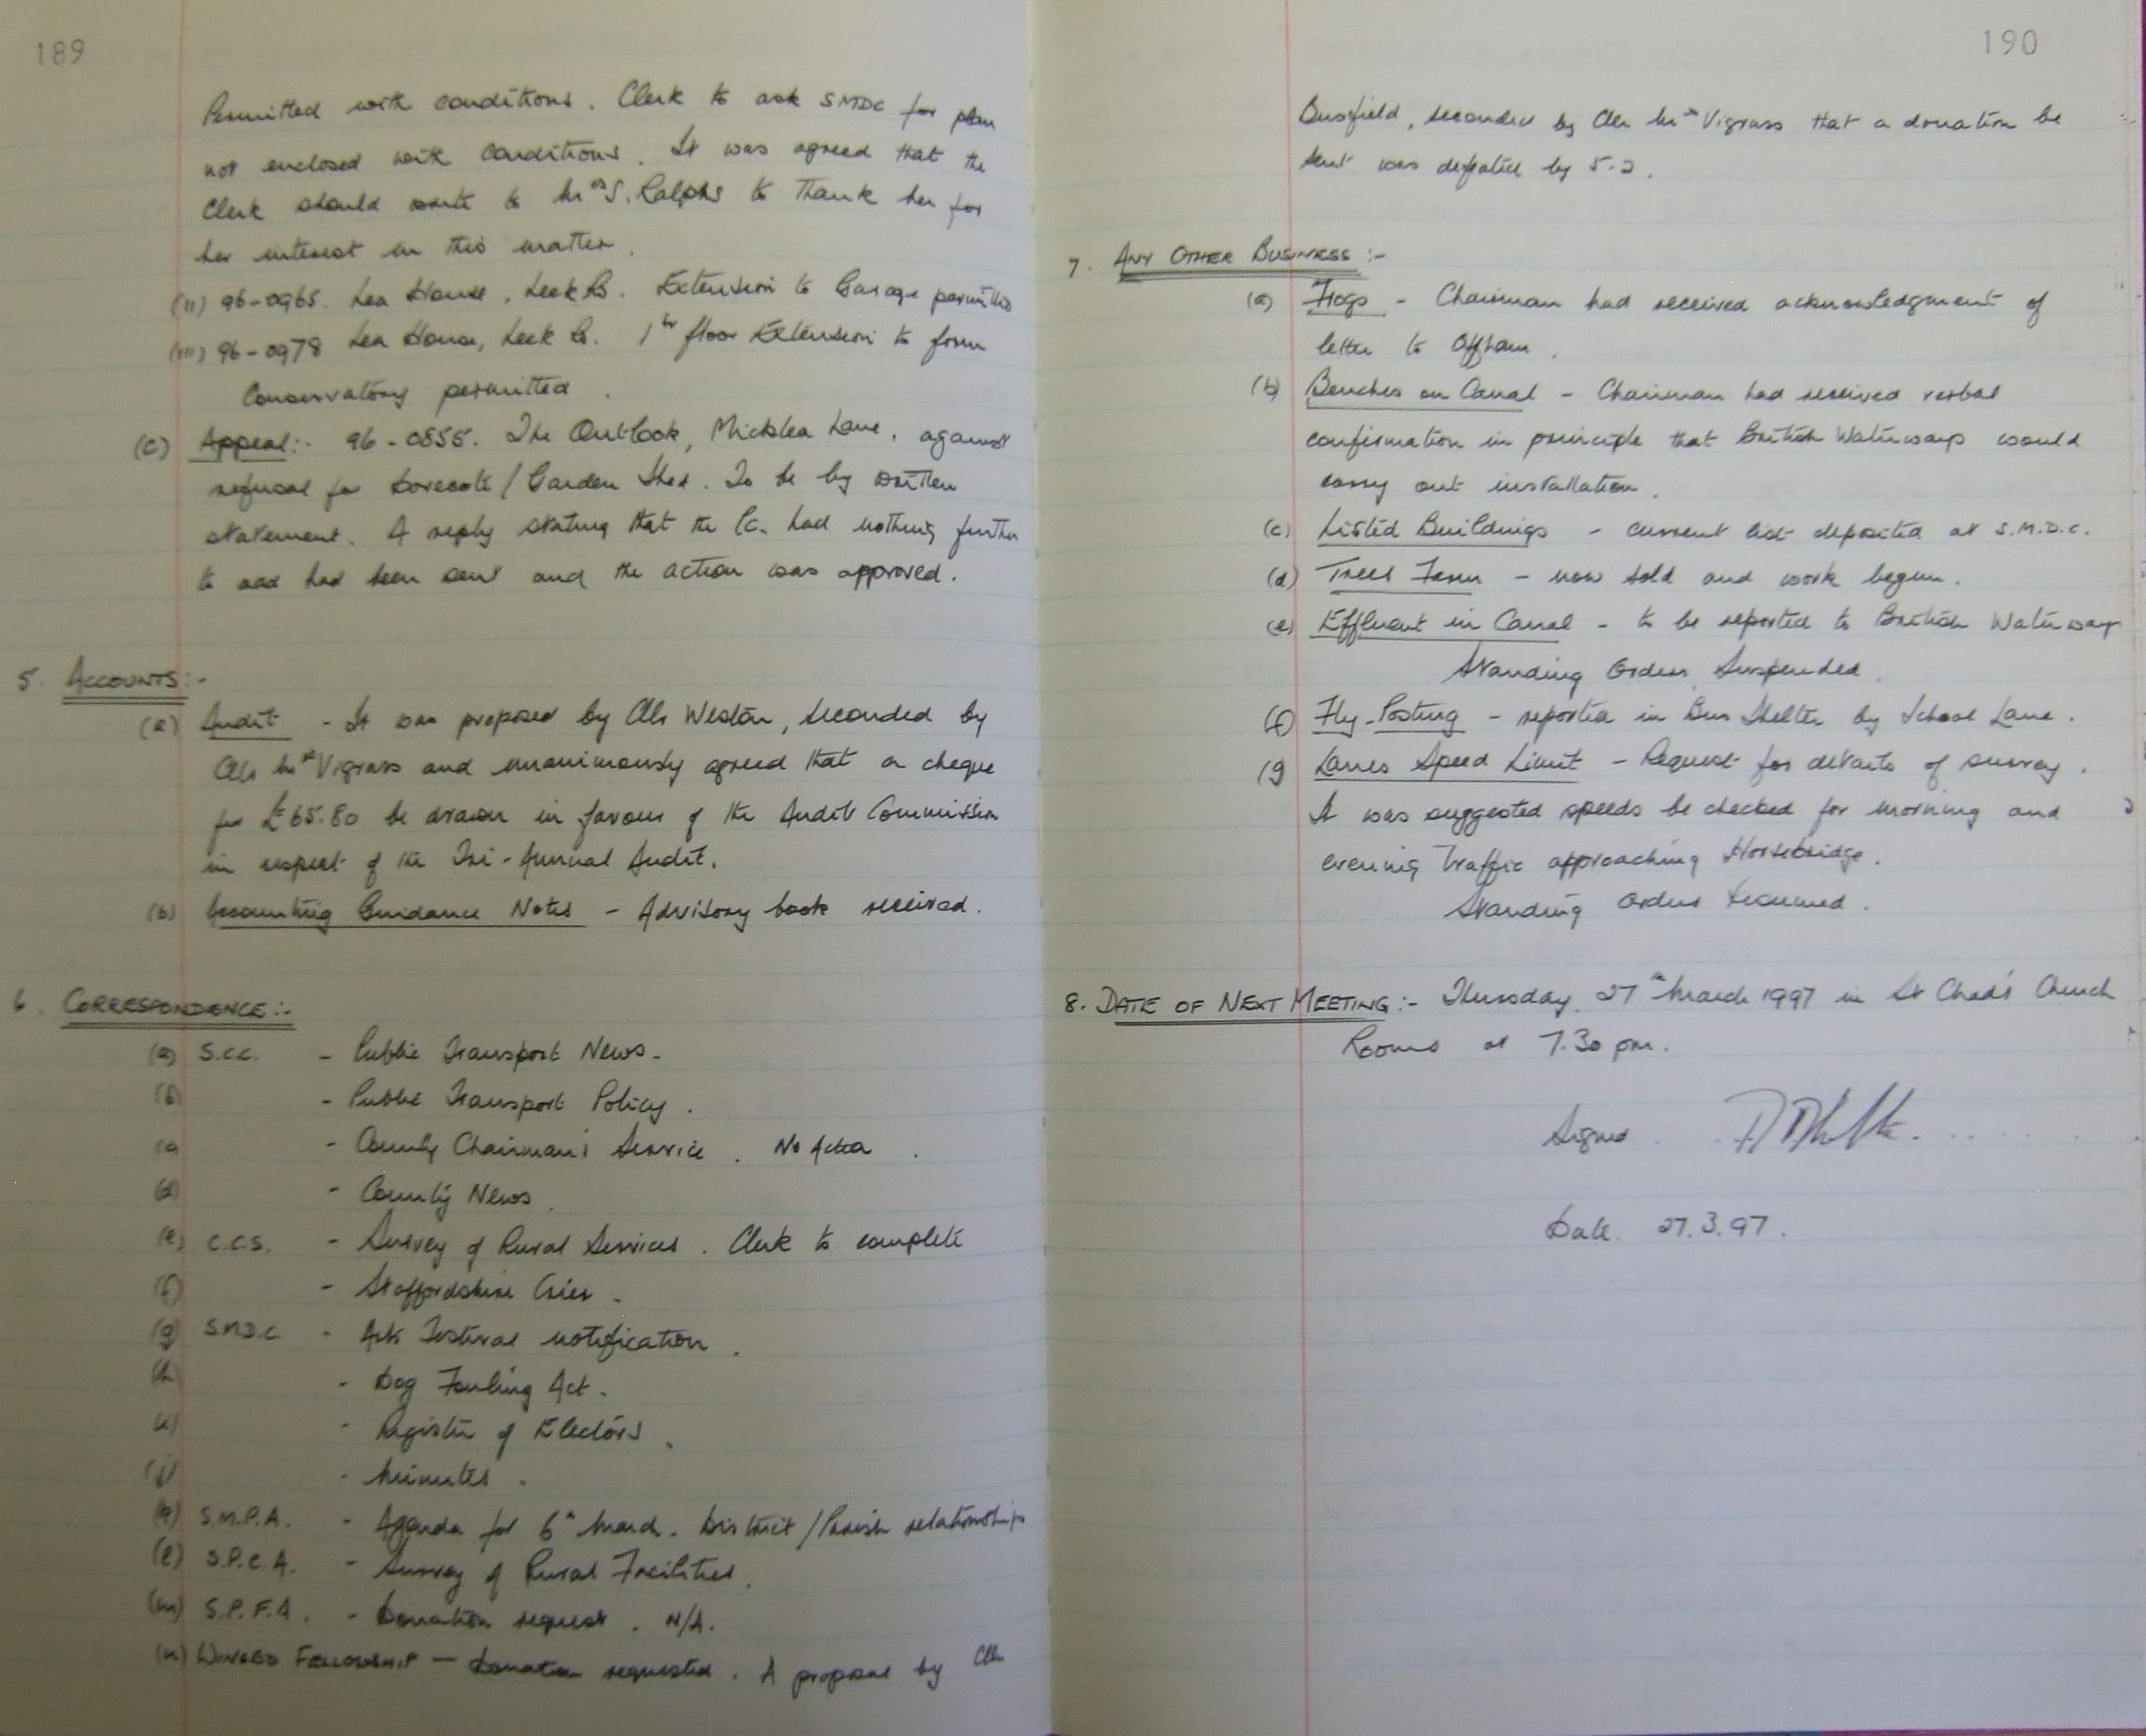 189
Permitted with conditions. Clerk to ask SMDC for plan
not enclosed with conditions. It was agreed that the
Clerk should write to Mrs S. Ralphs to thank her for
her interest in this matter.
(ii) 96-0965. Lea House, Leek Rd. Extension to Garage permitted
(iii) 96-0978 Lea House, Leek Rd. 1st floor Extension to form
Conservatory permitted.
(c) Appeal:- 96-0855. The Outlook, Micklea Lane, against
refusal for Dovecote/Garden Shed. To be by written
statement. A reply stating that the P.C. had nothing further
to add had been sent and the action was approved.
5. ACCOUNTS:-
(a) Audit - It was proposed by Cllr Weston, seconded by
Cllr Mrs Vigrass and unanimously agreed that a cheque
for £65.80 be drawn in favour of the Audit Commission
in respect of the Tri-Annual Audit.
(b) Accounting Guidance Notes - Advisory book received.
6. CORRESPONDENCE:-
(a) S.C.C. - Public Transport News.
(b) - Public Transport Policy.
(c) - County Chairman's Service. No Action.
(d) - County News.
(e) C.C.S. - Survey of Rural Services. Clerk to complete
(f) - Staffordshire Crier.
(g) S.M.D.C - Arts Festival notification.
(h) - Dog Fouling Act.
(i) - Register of Electors.
(j) - Minutes.
(k) S.M.P.A. - Agenda for 6th March. District/Parish relationships
(l) S.P.C.A. - Survey of Rural Facilities.
(m) S.P.F.A. - Donation request. N/A.
(n) WINGED FELLOWSHIP - Donation requested. A proposal by Cllr
190
Busfield, seconded by Cllr Mrs Vigrass that a donation be
sent was defeated by 5-2.
7. ANY OTHER BUSINESS:-
(a) Frogs - Chairman had received acknowledgment of
letter to Offham.
(b) Benches on Canal - Chairman had received verbal
confirmation in principle that British Waterways would
carry out installation.
(c) Listed Buildings - current list deposited at S.M.D.C.
(d) Trees Farm - now sold and work begun.
(e) Effluent in Canal - to be reported to British Waterways
Standing Orders Suspended.
(f) Fly-Posting - reported in Bus Shelter by School Lane.
(g) Lanes Speed Limit - Request for details of survey.
It was suggested speeds be checked for morning and
evening traffic approaching Horsebridge.
Standing Orders Resumed.
8. DATE OF NEXT MEETING:- Thursday 27th March 1997 in St Chad's Church
Rooms at 7.30 pm.
Signed
Date. 27.3.97.